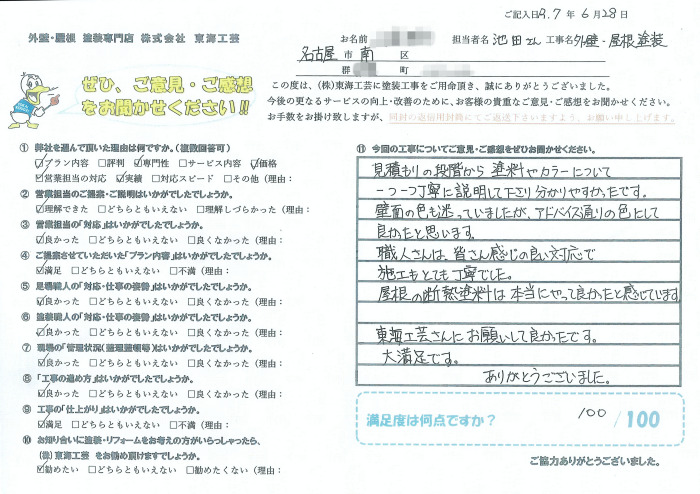 ご記入日R.7年6月28日
外壁・屋根 塗装専門店 株式会社 東海工芸
お名前 担当者名 池田さん 工事名 外壁・屋根塗装
名古屋 市 南 区
群 町
ぜひ、ご意見・ご感想
をお聞かせください!!
この度は、(株)東海工芸に塗装工事をご用命頂き、誠にありがとうございました。
今後の更なるサービスの向上・改善のために、お客様の貴重なご意見・ご感想をお聞かせください。
お手数をお掛け致しますが、同封の返信用封筒にてご返送下さいますよう、お願い申し上げます。
① 弊社を選んで頂いた理由は何ですか。(複数回答可)
☑プラン内容 □評判 ☑専門性 □サービス内容 ☑価格
☑営業担当の対応 ☑実績 □対応スピード □その他(理由:
② 営業担当のご提案・ご説明はいかがでしたでしょうか。
☑理解できた □どちらともいえない □理解しづらかった(理由:
③ 営業担当の「対応」はいかがでしたでしょうか。
☑良かった □どちらともいえない □良くなかった(理由:
④ ご提案させていただいた「プラン内容」はいかがでしたでしょうか。
☑満足 □どちらともいえない □不満(理由:
⑤ 足場職人の「対応・仕事の姿勢」はいかがでしたでしょうか。
☑良かった □どちらともいえない □良くなかった(理由:
⑥ 塗装職人の「対応・仕事の姿勢」はいかがでしたでしょうか。
☑良かった □どちらともいえない □良くなかった(理由:
⑦ 現場の「管理状況(整理整頓等)はいかがでしたでしょうか。
☑良かった □どちらともいえない □良くなかった(理由:
⑧ 「工事の進め方」はいかがでしたでしょうか。
☑良かった □どちらともいえない □良くなかった(理由:
⑨ 工事の「仕上がり」はいかがでしたでしょうか。
☑満足 □どちらともいえない □不満(理由:
⑩ お知り合いに塗装・リフォームをお考えの方がいらっしゃったら、
(株)東海工芸 をお勧め頂けますでしょうか。
☑勧めたい □どちらともいえない □勧めたくない(理由:
⑪ 今回の工事についてご意見・ご感想をぜひお聞かせください。
見積もりの段階から 塗料やカラーについて
一つ一つ丁寧に説明して下さり分かりやすかったです。
壁面の色も迷っていましたが、アドバイス通りの色にして
良かったと思います。
職人さんは、皆さん感じの良い対応で
施工もとても丁寧でした。
屋根の断熱塗料は本当にやって良かったと感じています
東海工芸さんにお願いして良かったです。
大満足です。
ありがとうございました。
満足度は何点ですか? 100 /100
ご協力ありがとうございました。